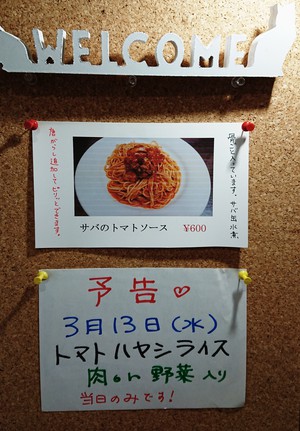 WELCOME
サバのトマトソース ¥600
唐がらし追加してピリッとできます。
入っています。サバ缶水煮
予告♡
3月13日(水)
トマトハヤシライス
肉on野菜入り
当日のみでる!